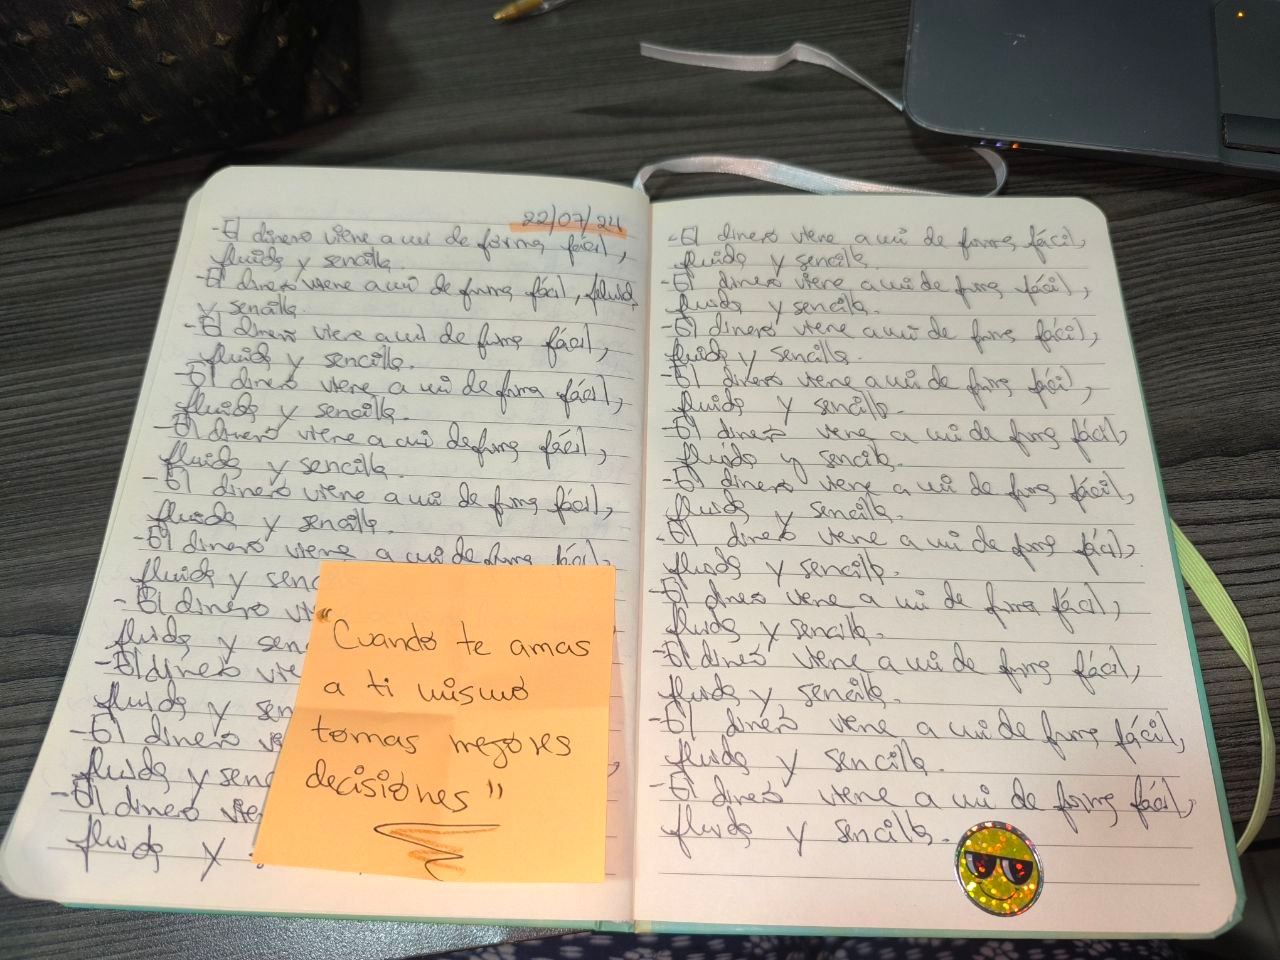 22/07/24
-El dinero viene a mi de forma fácil,
fluida y sencilla.
-El dinero viene a mi de forma fácil, fluida
y sencilla.
-El dinero viene a mi de forma fácil,
fluida y sencilla.
-El dinero viene a mi de forma fácil,
fluida y sencilla.
-El dinero viene a mi de forma fácil,
fluida y sencilla.
-El dinero viene a mi de forma fácil,
fluida y sencilla.
-El dinero viene a mi de forma fácil,
fluida y senc
-El dinero vi
fluida y sen
-El dinero vie
fluida y sen
-El dinero vi
fluida y senc
-El dinero vie
fluida y
"Cuando te amas
a ti mismo
tomas mejores
decisiones"
-El dinero viene a mi de forma fácil,
fluida y sencilla.
-El dinero viene a mi de forma fácil,
fluida y sencilla.
-El dinero viene a mi de forma fácil,
fluida y sencilla.
-El dinero viene a mi de forma fácil,
fluida y sencilla.
-El dinero viene a mi de forma fácil,
fluida y sencilla.
-El dinero viene a mi de forma fácil,
fluida y sencilla.
-El dinero viene a mi de forma fácil,
fluida y sencilla.
-El dinero viene a mi de forma fácil,
fluida y sencilla.
-El dinero viene a mi de forma fácil,
fluida y sencilla.
-El dinero viene a mi de forma fácil,
fluida y sencilla.
-El dinero viene a mi de forma fácil,
fluida y sencilla.